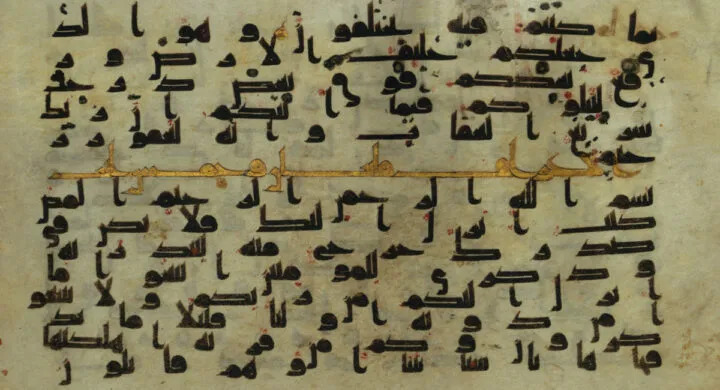 بما كنتم فيه تختلفون وهو الذ
ي جعلكم خلئف الارض و ر
فع بعضكم فوق بعض درجت
ليبلوكم في ما اتيكم ان ربك
سريع العقاب وانه لغفور ر
حيم
بسم الله الرحمن الرحيم المص
كتب انزل اليك فلا يكن في
صدرك حرج منه لتنذر به
وذكرى للمومنين اتبعوا ما
انزل اليكم من ربكم ولا تتبعو
ا من دونه اوليا قليلا ما تذ
كرون وكم من قرية اهلكنها
فجاها باسنا بيتا او هم قايلون